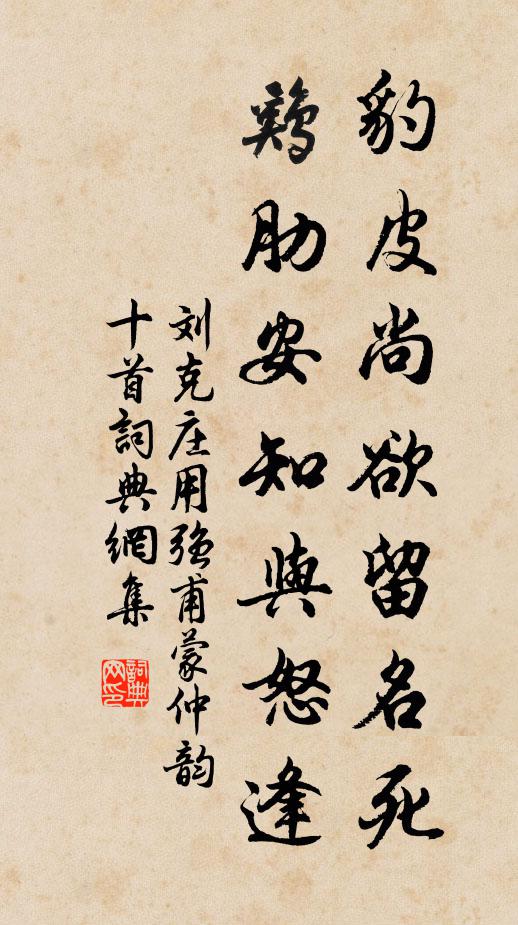 豹皮尚欲留名死
鷄肋安知與怒逢
刘克庄用強甫蒙仲韵
十首詞典網集
詞典网印